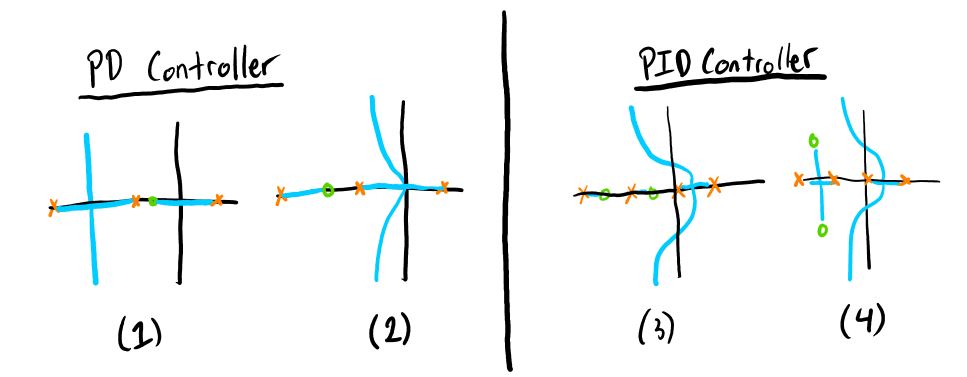 PD Controller
PID Controller
(1)
(2)
(3)
(4)